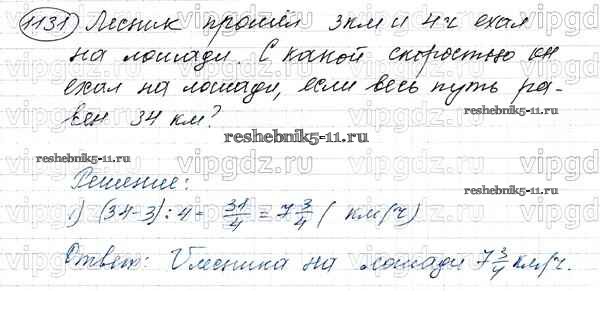 1131 Лесник прошёл 3км и 4ч ехал
на лошади. С какой скоростью он
ехал на лошади, если весь путь ра-
вен 34 км?
reshebnik5-11.ru
reshebnik5-11.ru
reshebnik5-11.ru
Решение:
1) (34-3):4= 31/4 = 7 3/4 ( км/ч)
Ответ: Vлесника на лошади 7 3/4 км/ч.